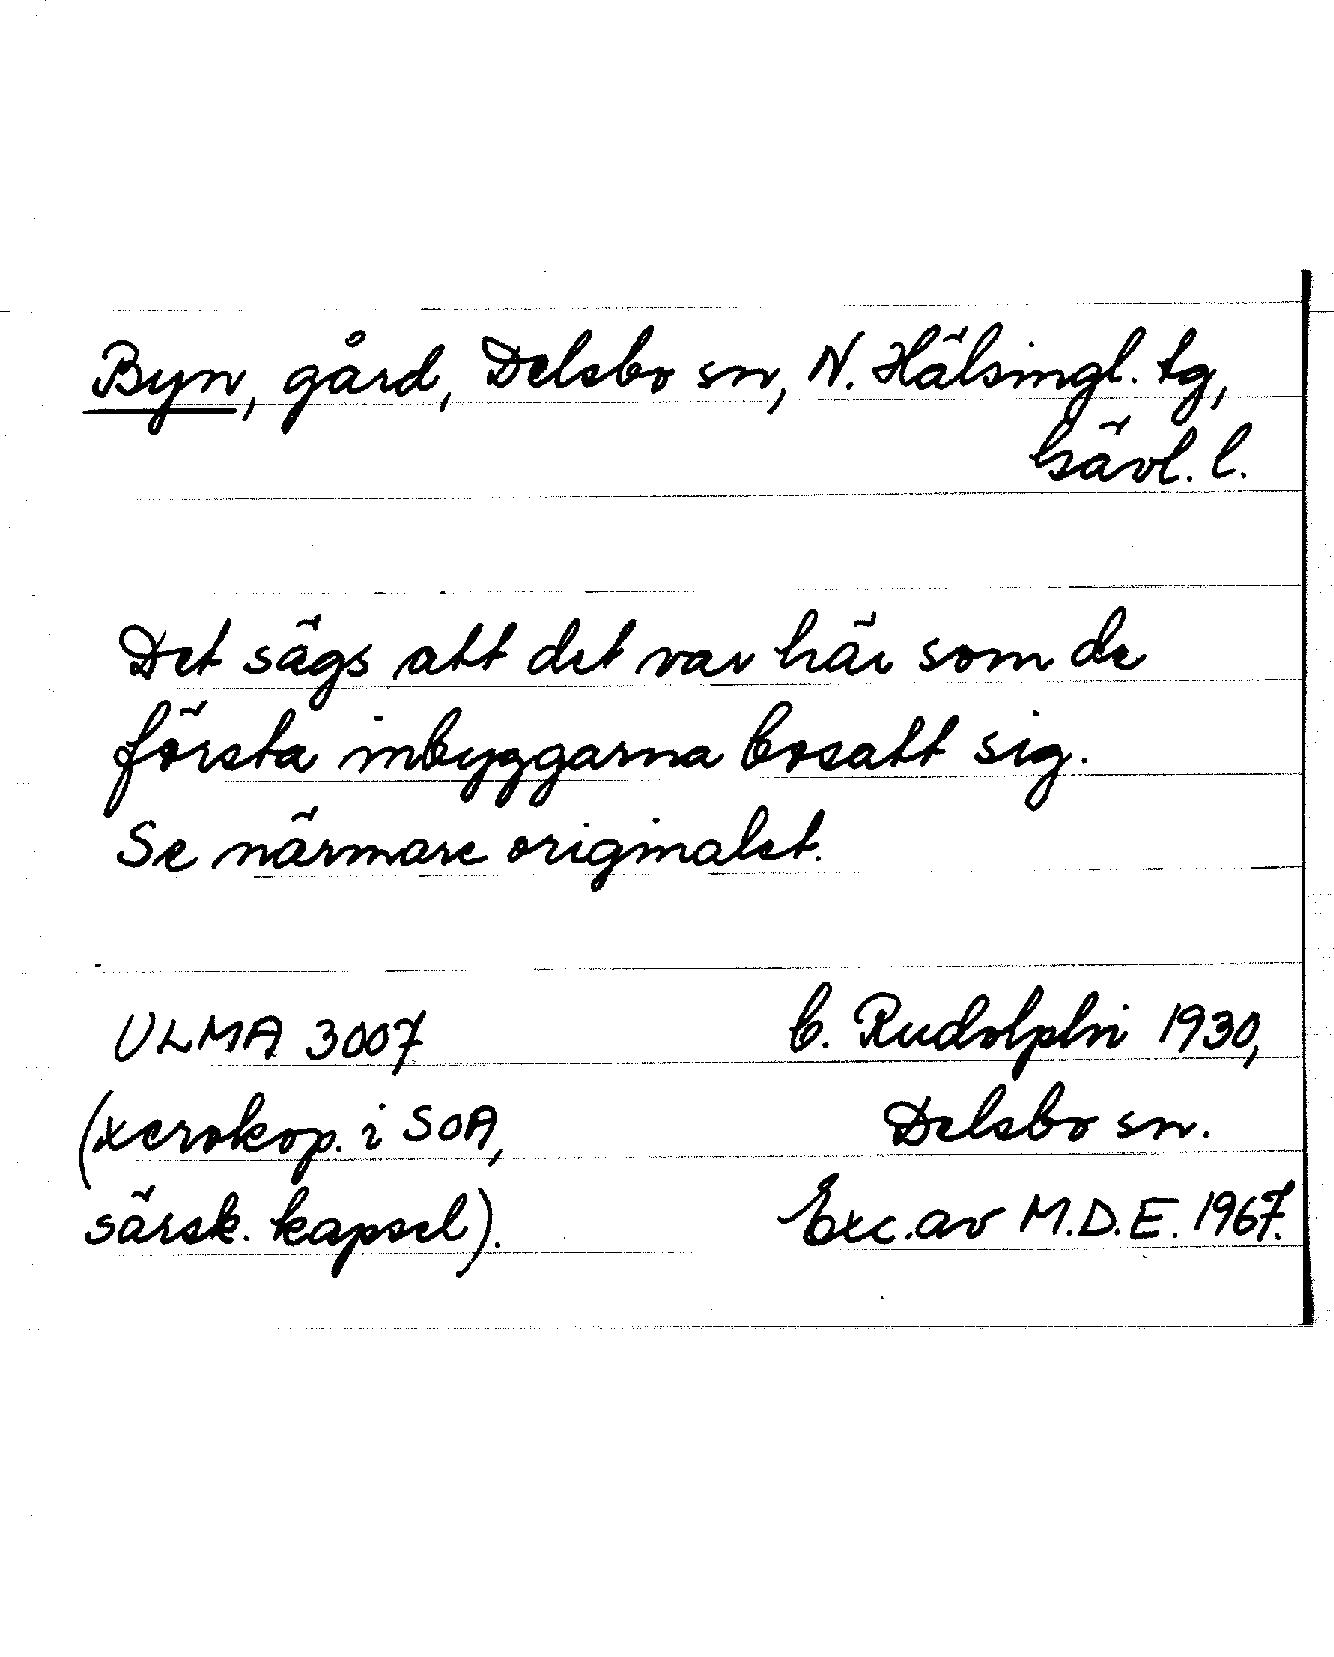 Byn, gård, Delsbo sn, N. Hälsingl. tg,
Gävl. l.
Det sägs att det var här som de
första inbyggarna bosatt sig.
Se närmare originalet.
ULMA 3007
(xerokop. i SOA,
särsk. kapsel).
G. Rudolphi 1930,
Delsbo sn.
Exc. av M.D.E. 1967.